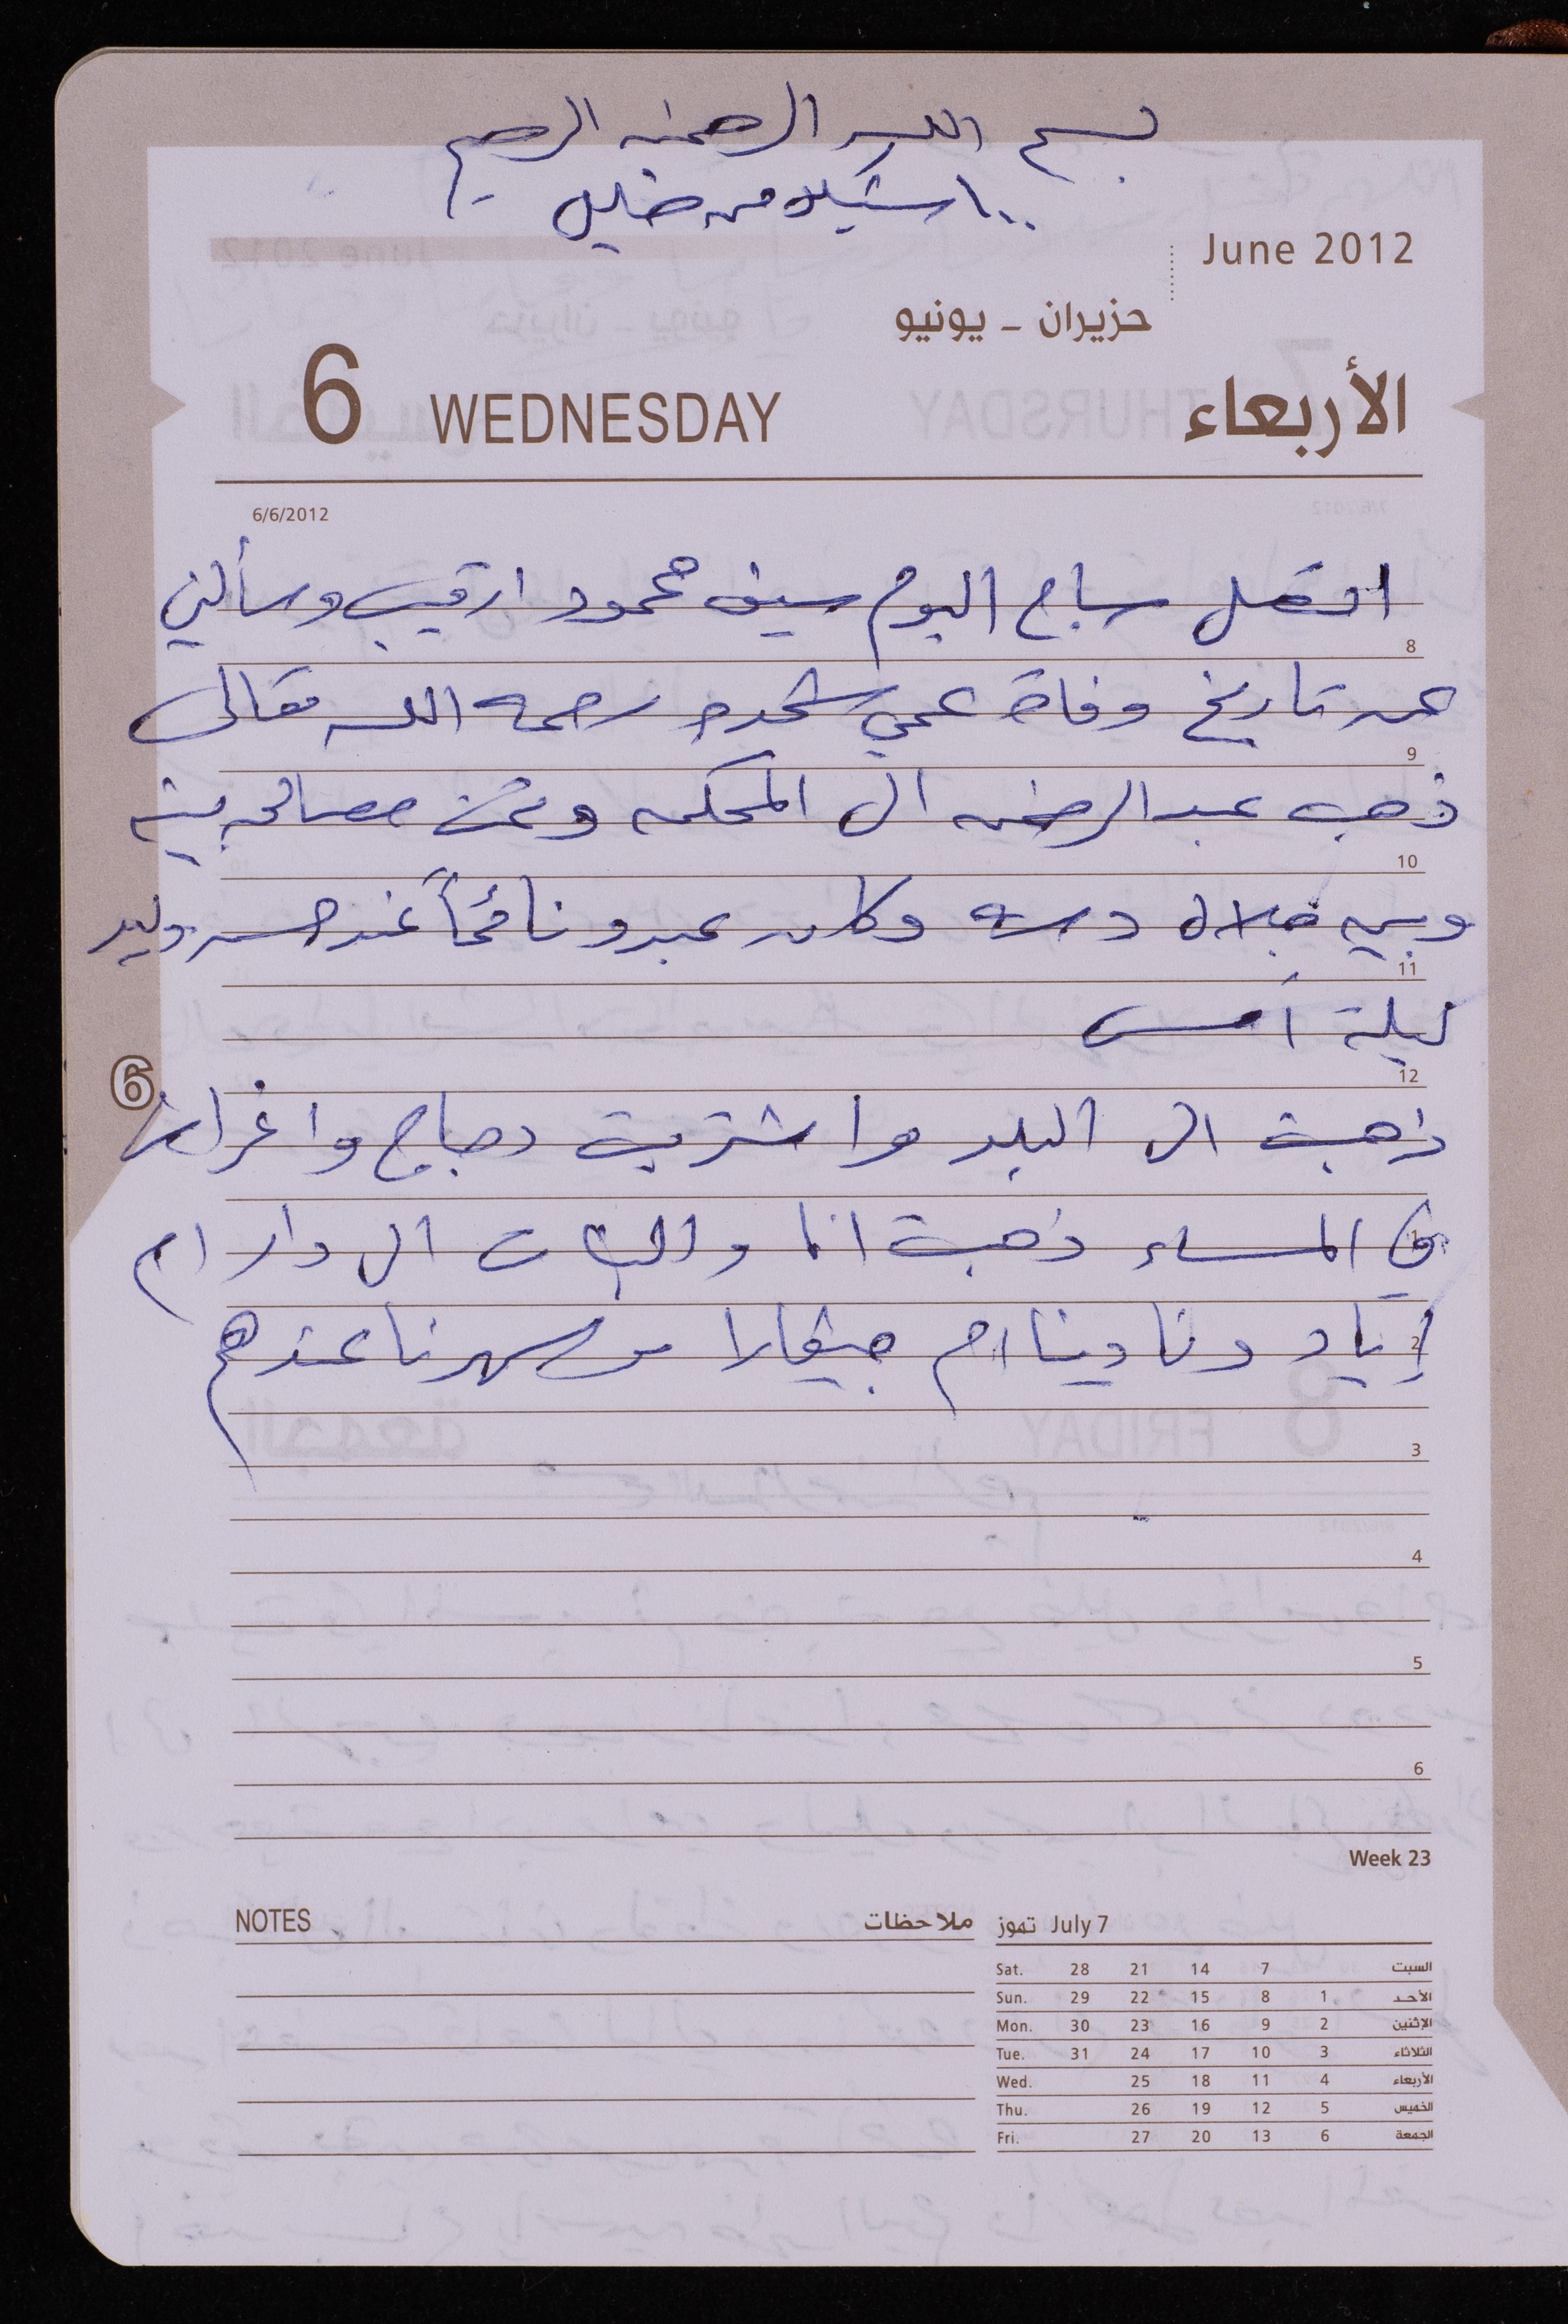 بسم الله الرحمن الرحيم
١٠٠ شيكلا من خليل
June 2012
حزيران - يونيو
6 WEDNESDAY الأربعاء
6/6/2012
اتصل سباح اليوم سيف محمود ارقيب وسألني
8
عن تاريخ وفاة عمي شحده رحمه الله تعالى
9
ذهب عبد الرحمن الى المحكمه وتمت مصالحه بينه
10
وبين جلال درسه وكان عبد نائماً عند حسن وليد
11
ليلة أمس
12
6
ذهبت الى البلد واشتريت دجاج واغراض
1
في المساء ذهبت انا والبنات الى دار ام
إياد ونادينا ام جيفارا وسهرنا عندهم
2
3
4
5
6
Week 23
NOTES ملاحظات
تموز July 7
Sat. 28 21 14 7 السبت
Sun. 29 22 15 8 1 الأحد
Mon. 30 23 16 9 2 الإثنين
Tue. 31 24 17 10 3 الثلاثاء
Wed. 25 18 11 4 الأربعاء
Thu. 26 19 12 5 الخميس
Fri. 27 20 13 6 الجمعة